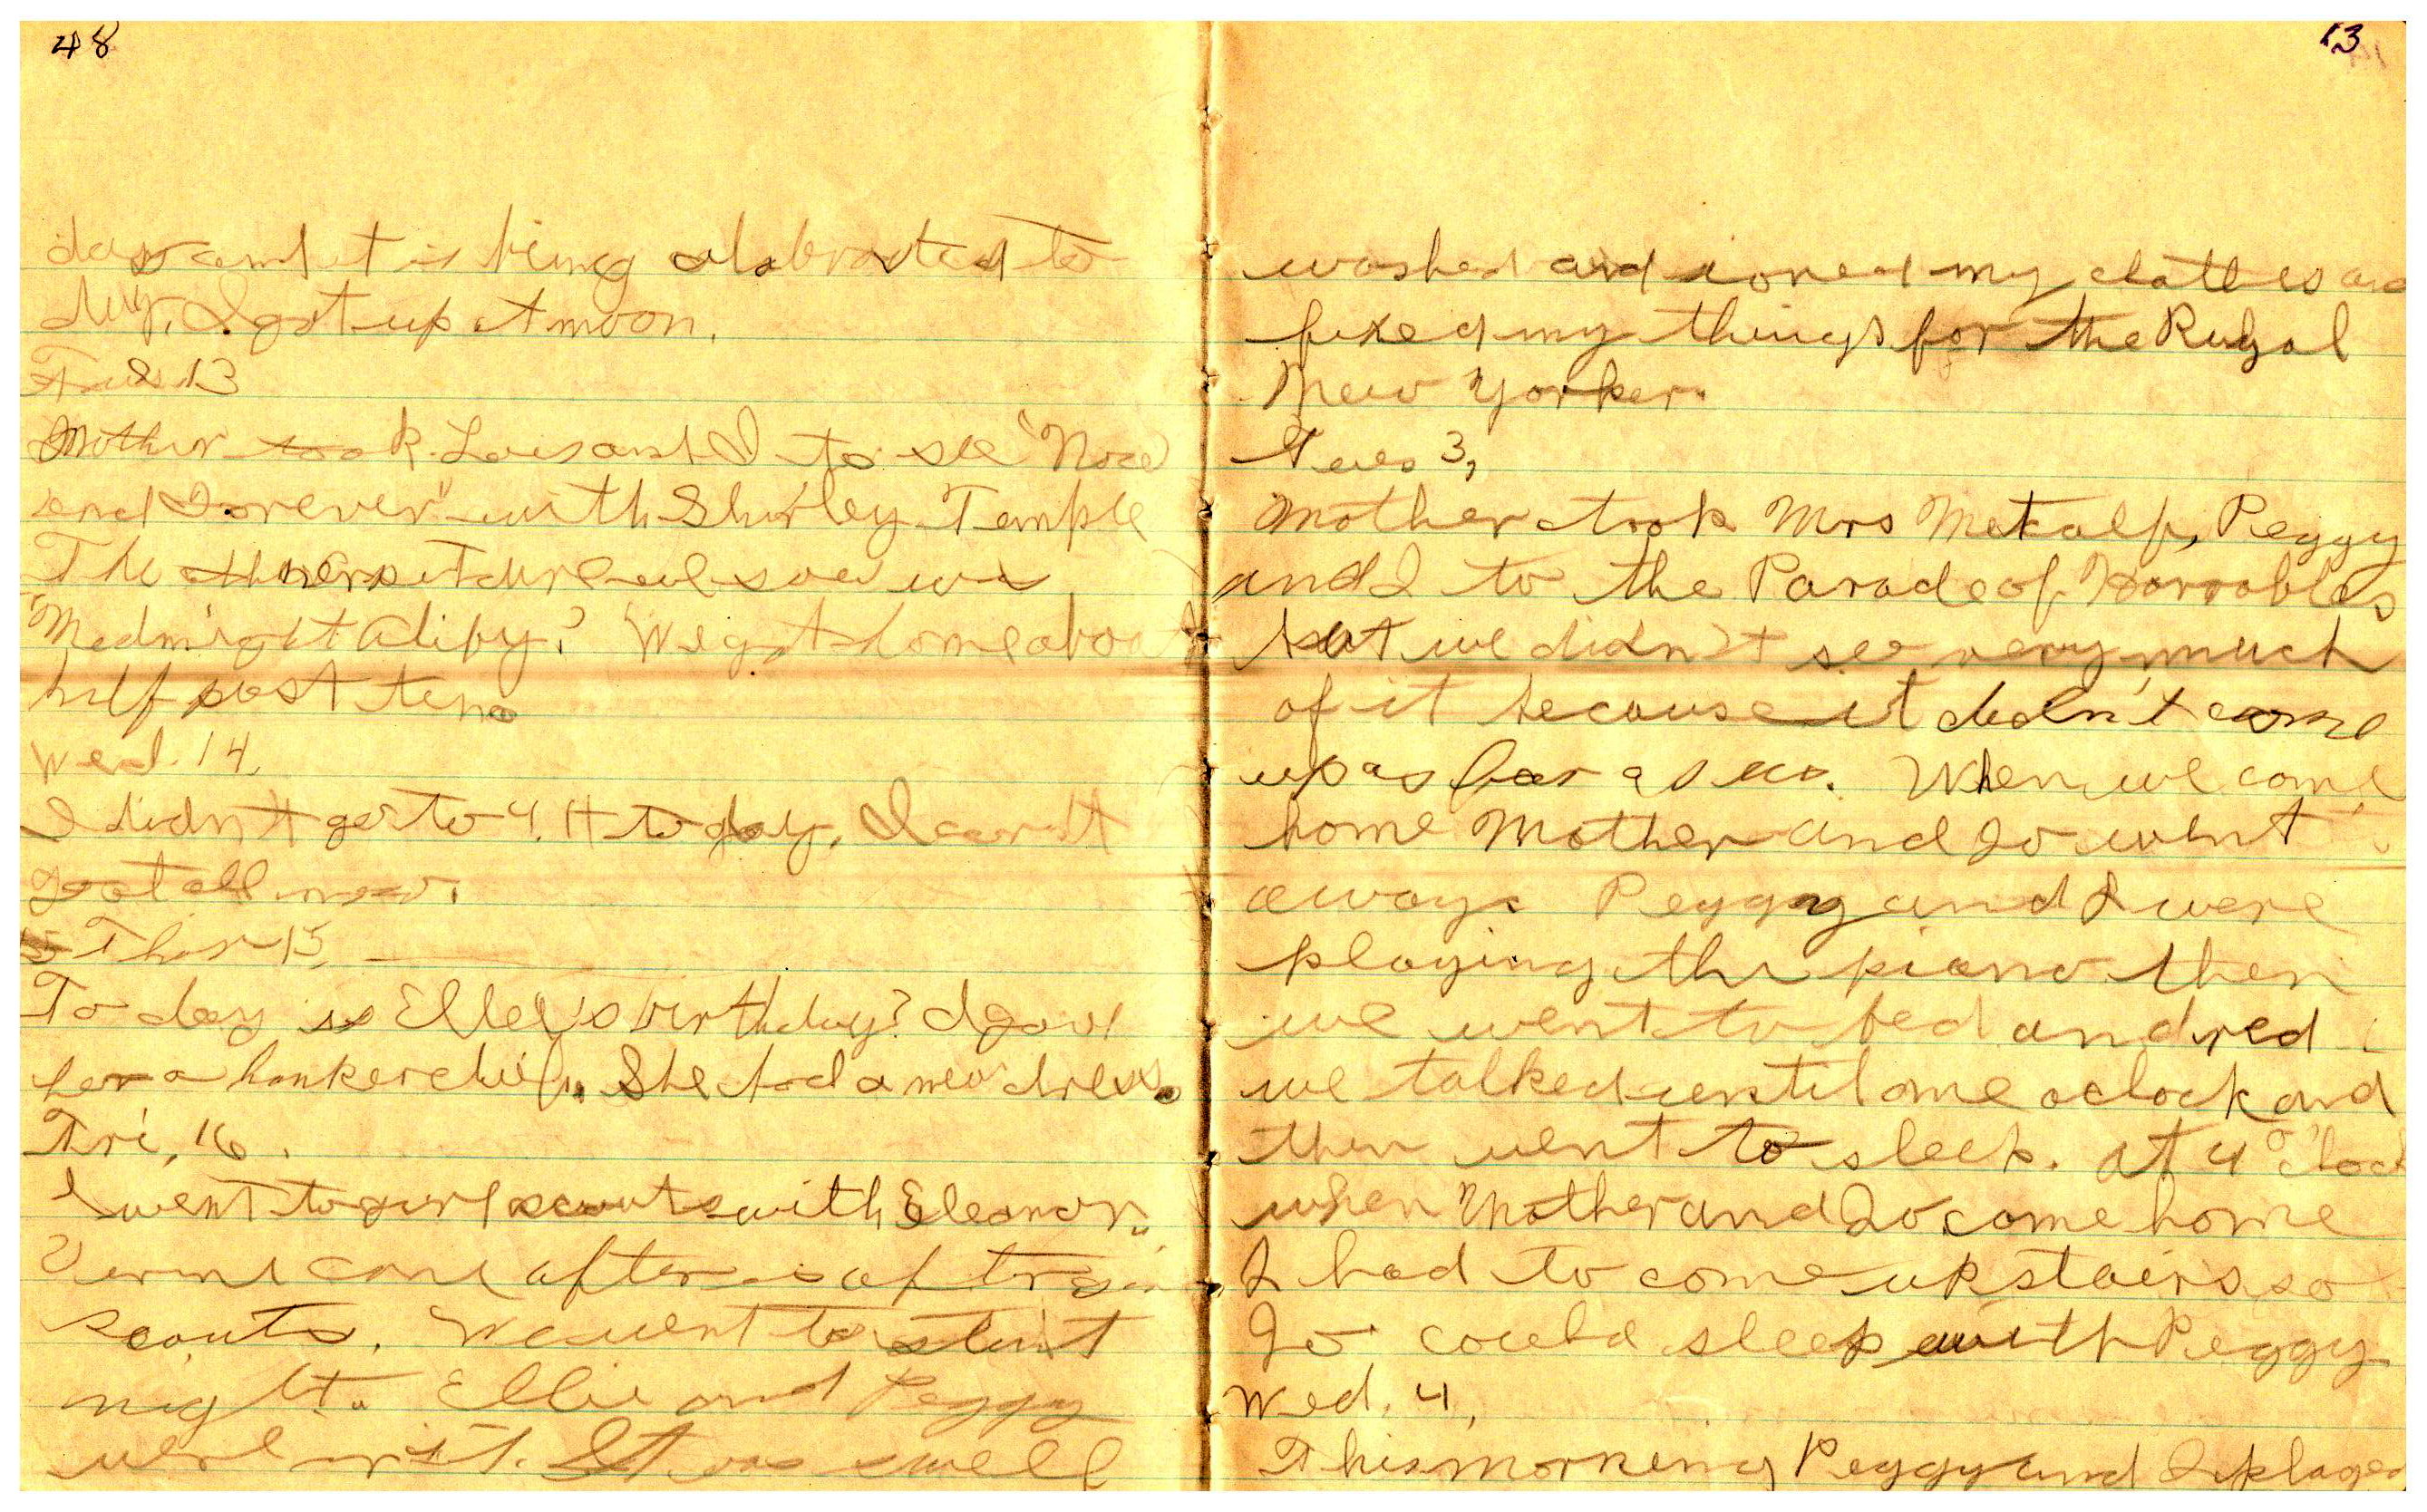 48
day and it is being celebrated to
day. I got up at noon.
Tues 13
Mother took Lois and I to see "Now
and Forever" with Shirley Temple
The other picture we saw was
"Mednight Aliby." We got home about
half past ten.
Wed. 14,
I didn't go to 4.H to day. I can't
go at all now.
Thur 15,
To day is Elley's birthday? I gave
her a hankerchief. She had a new dress.
Fri, 16.
I went to girl scouts with Eleanor.
came after
scouts. We went to stunt
night. Ellie and Peggy
were in it. It was swell
13
washed and ironed my clothes and
fixed my things for the Rural
New Yorker.
Tues 3,
Mother took Mrs Metcalf, Peggy
and I to the Parade of Horrobles
but we didn't see very much
of it because it didn't come
up as far as us. When we came
home Mother and Jo went
away. Peggy and I were
playing the piano then
we went to bed and red
we talked until one oclock and
then went to sleep. At 4 o'clock
when Mother and Jo come home
I had to come upstairs so
Jo could sleep with Peggy
Wed. 4,
This morning Peggy and I played